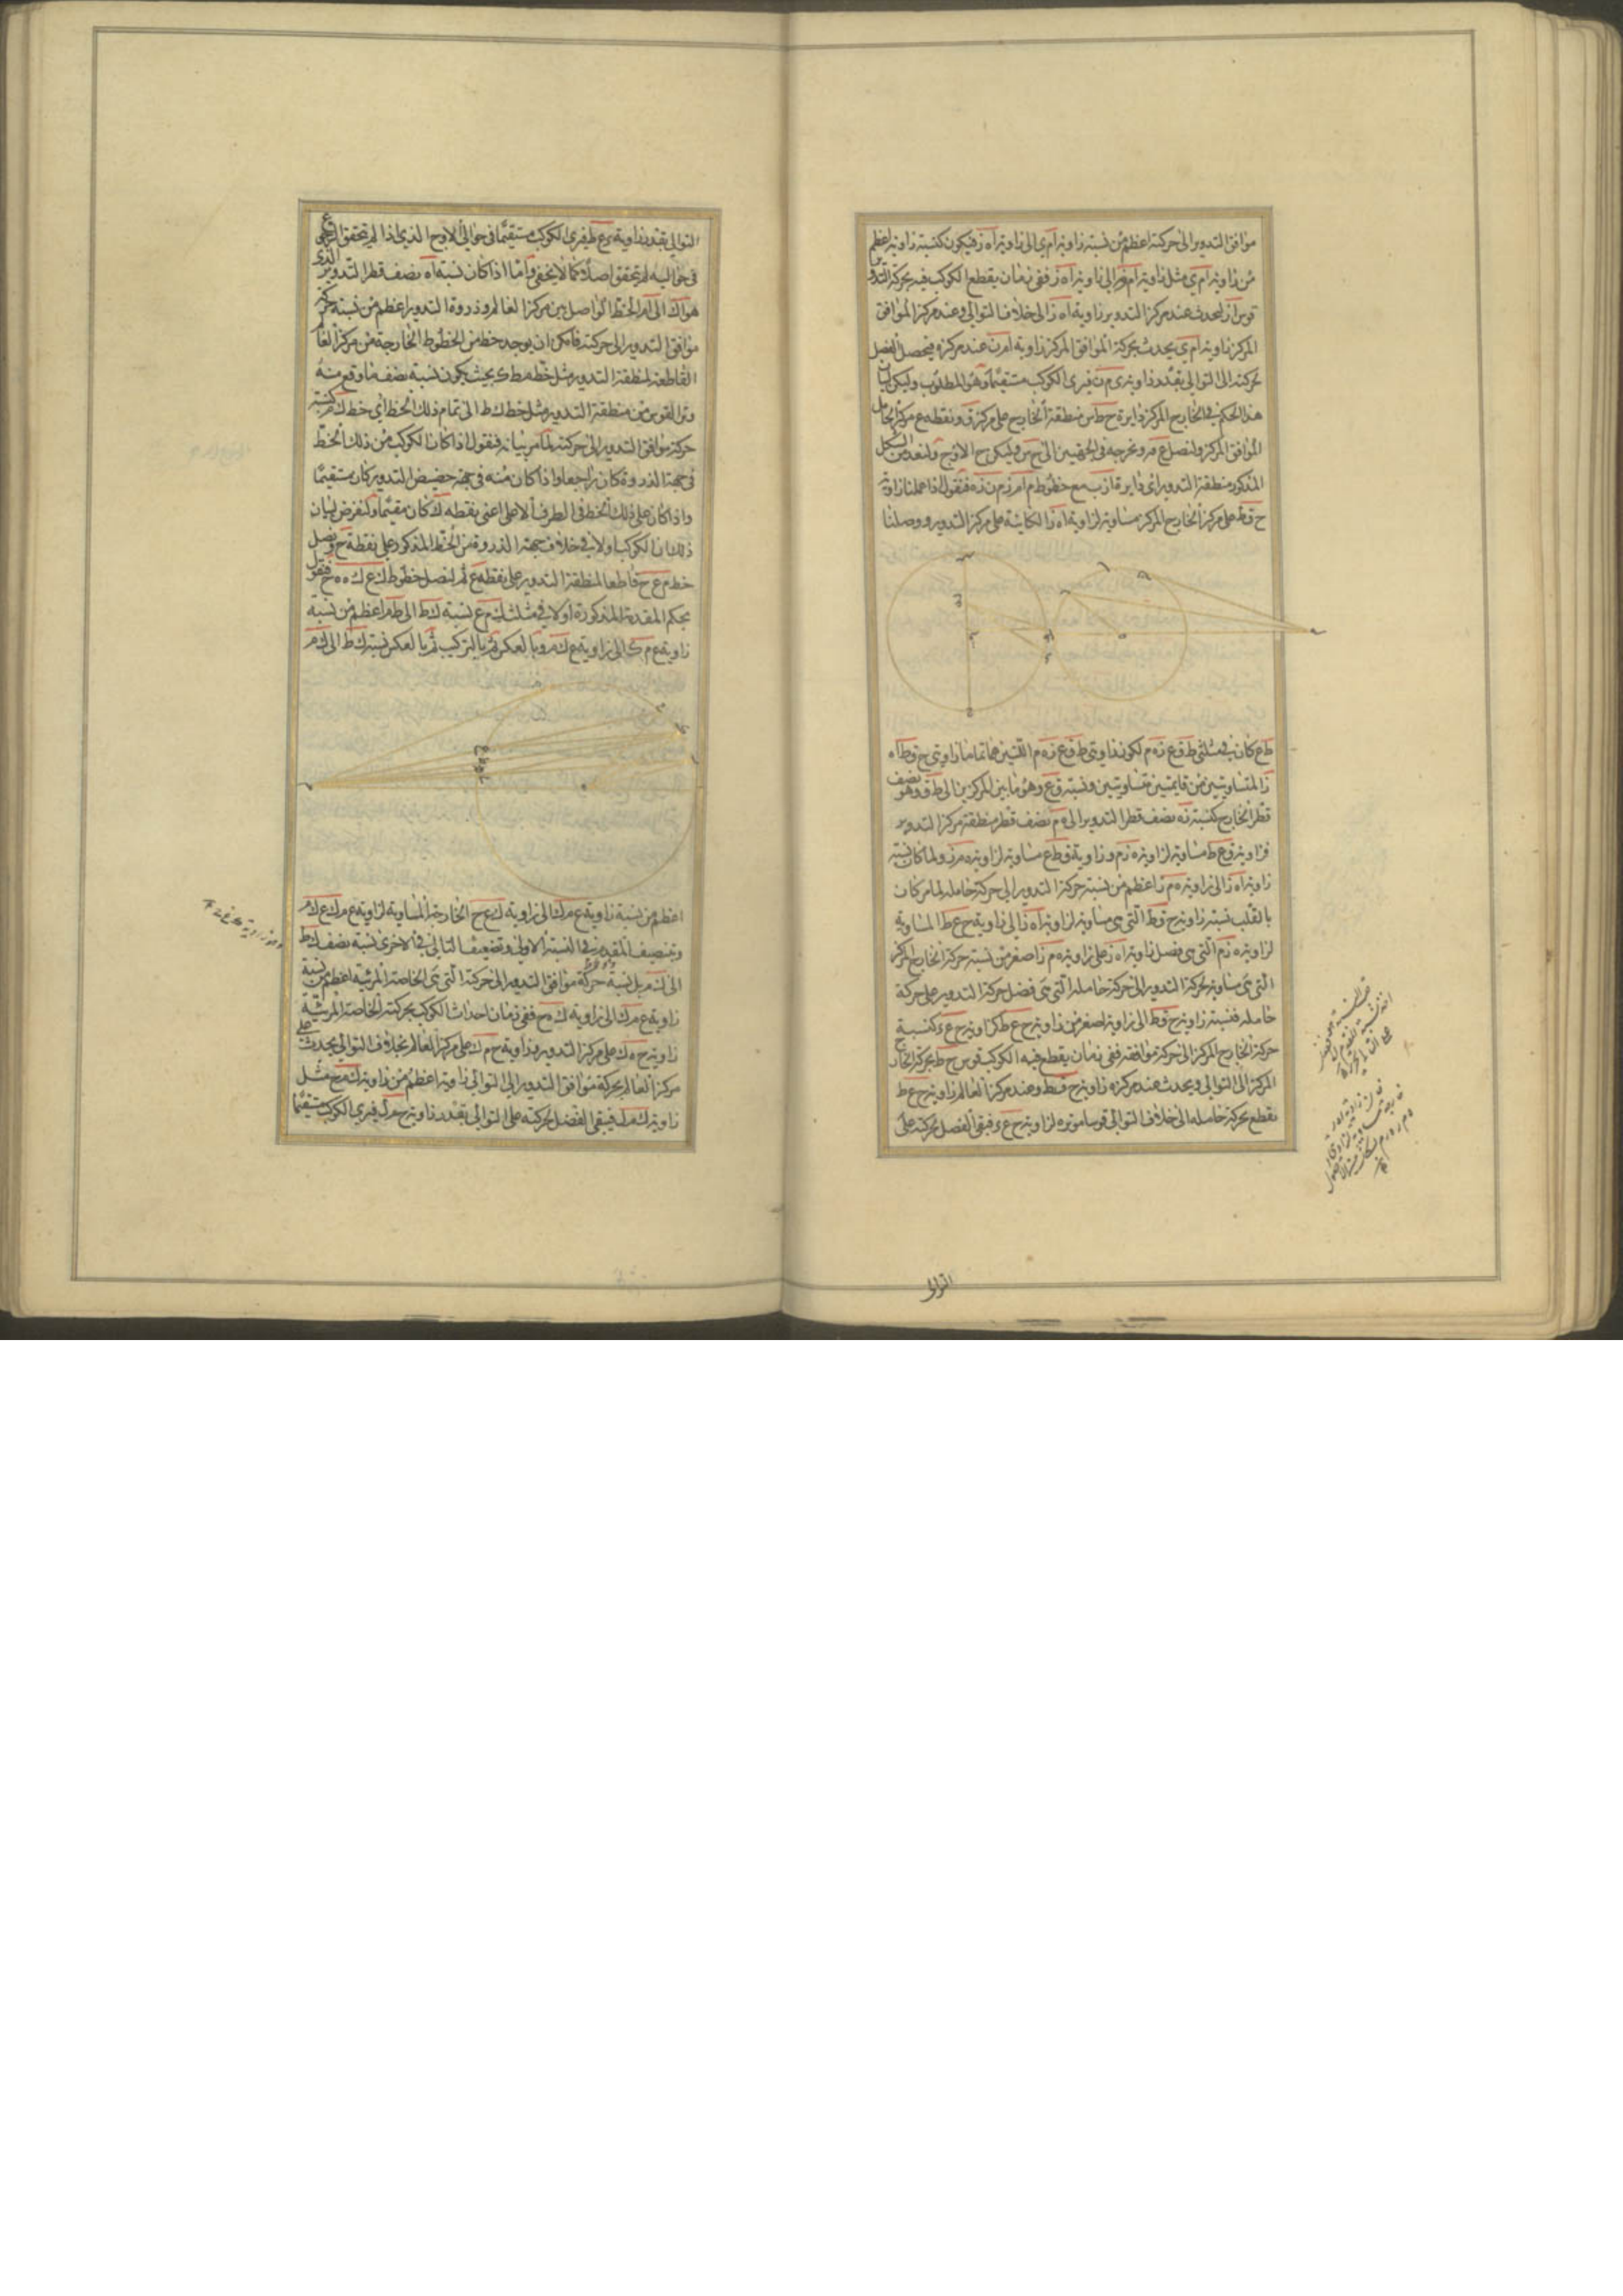 موافق التدوير الى حركته اعظم من نسبة زاوية ام ي الى زاوية اه ز فيكون كنسبة زاوية اعظم
من زاوية ام ي مثل زاوية ام ن الى زاوية اه ز ففي زمان يقطع الكوكب فيه بحركة التدوير
قوس از يحدث عند مركز التدوير زاوية اه ز الى خلاف التوالي وعند مركز الموافق
المركز زاوية ام ي يحدث بحركة الموافق المركز زاوية ام ن عند مركزه فيحصل الفضل
لحركته الى التوالي بقدر زاوية ي م ن فيرى الكوكب مستقيما وهو المطلوب وليكن لبيان
هذا الحكم في الخارج المركز دايرة ح ط س منطقة الخارج على مركز ق ونقطة ع مركز الحامل
الموافق المركز ولنصل ع ق ونخرجه في الجهتين الى ح س وليكن ح الاوج ولنعد من الشكل
المذكور منطقة التدوير اعني دايرة از ب مع خطوط م ام ز م ن زه فنقول اذا عملنا زاوية
ح ق ط على مركز الخارج المركز مساوية لزاوية اه ز الكائنة على مركز التدوير ووصلنا
ط ع كان في مثلثي ط ق ع زه م لكون زاويتي ط ق ع زه م اللتين هما تماما زاويتي ح ق ط اه
ز المتساويتين من قايمتين متساويتين ونسبة ق ع وهو ما بين المركزين الى ط ق وهو نصف
قطر الخارج كنسبة زه نصف قطر التدوير الى ه م نصف قطر منطقة مركز التدوير
فزاوية ق ع ط مساوية لزاوية ه ز م وزاوية ق ط ع مساوية لزاوية ه م ز ولما كان نسبة
زاوية اه ز الى زاوية ه م ز اعظم من نسبة حركة التدوير الى حركة حامله لما مر كان
بالقلب نسبة زاوية ح ق ط التي هي مساوية لزاوية اه ز الى زاوية ح ع ط المساوية
لزاوية ه ز م التي هي فضل زاوية اه ز على زاوية ه م ز اصغر من نسبة حركة الخارج المركز
التي هي مساوية لحركة التدوير الى حركة حامله التي هي فضل حركة التدوير على حركة
حامله فنسبة زاوية ح ق ط الى زاوية اصغر من زاوية ح ع ط كزاوية ح ع ء كنسبة
حركة الخارج المركز الى حركة موافقه ففي زمان يقطع فيه الكوكب قوس ح ط بحركة الخارج
المركز الى التوالي ويحدث عند مركزه زاوية ح ق ط وعند مركز العالم زاوية ح ع ط
يقطع بحركة حامله الى خلاف التوالي قوسا موترة لزاوية ح ع ء فبقي الفضل لحركته على
التوالي
التوالي بقدر زاوية ء ع ط فيرى الكوكب مستقيما في حوالي الاوج الذي اذا لم يتحقق الرجوع
في حواليه لم يتحقق اصلا كما لا يخفى واما اذا كان نسبة اه نصف قطر التدوير الذي
هو اك الى ام الخط الواصل بين مركز العالم وذروة التدوير اعظم من نسبة حركة
موافق التدوير الى حركته فامكن ان يوجد خط من الخطوط الخارجة من مركز العالم
القاطعة لمنطقة التدوير مثل خط م ط ك بحيث يكون نسبة نصف ما وقع منه
وتر القوس من منطقة التدوير مثل خط ك ط الى تمام ذلك الخط اي خط ك م كنسبة
حركة موافق التدوير الى حركته لما مر بيانه فنقول اذا كان الكوكب من ذلك الخط
في جهة الذروة كان راجعا واذا كان منه في جهة حضيض التدوير كان مستقيما
واذا كان على ذلك الخط في الطرف الاعلى اعني نقطة ك كان مقيما ولنفرض لبيان
ذلك ان الكوكب اولا في خلاف جهة الذروة من الخط المذكور على نقطة ح ونصل
خط م ع ح قاطعا لمنطقة التدوير على نقطة ع ثم لنصل خطوط ك ع ك ه ه ح فنقول
بحكم المقدمة المذكورة اولا في مثلث ك م ع نسبة ك ط الى ط م اعظم من نسبة
زاوية ع م ك الى زاوية ع ك م وبالعكس ثم بالتركيب ثم بالعكس نسبة ك ط الى ك م
اعظم من نسبة زاوية ع م ك الى زاوية ك ع ح الخارجة المساوية لزاويتي ع م ك ع ك م
وبتنصيف المقدم في النسبة الاولى وتضعيف التالي في الاخرى نسبة نصف ك ط
الى ك م بل نسبة حركة موافق التدوير الى حركته التي هي الخاصة المرئية اعظم من نسبة
زاوية ع م ك الى زاوية ك ه ح ففي زمان احداث الكوكب بحركته الخاصة المرئية
زاوية ح ه ك على مركز التدوير وزاوية ح م ك على مركز العالم بخلاف التوالي يحدث على
مركز العالم بحركة موافق التدوير الى التوالي زاوية اعظم من زاوية ك م ح مثل
زاوية ك م ل فيبقى الفضل لحركته على التوالي بقدر زاوية ح م ل فيرى الكوكب مستقيما